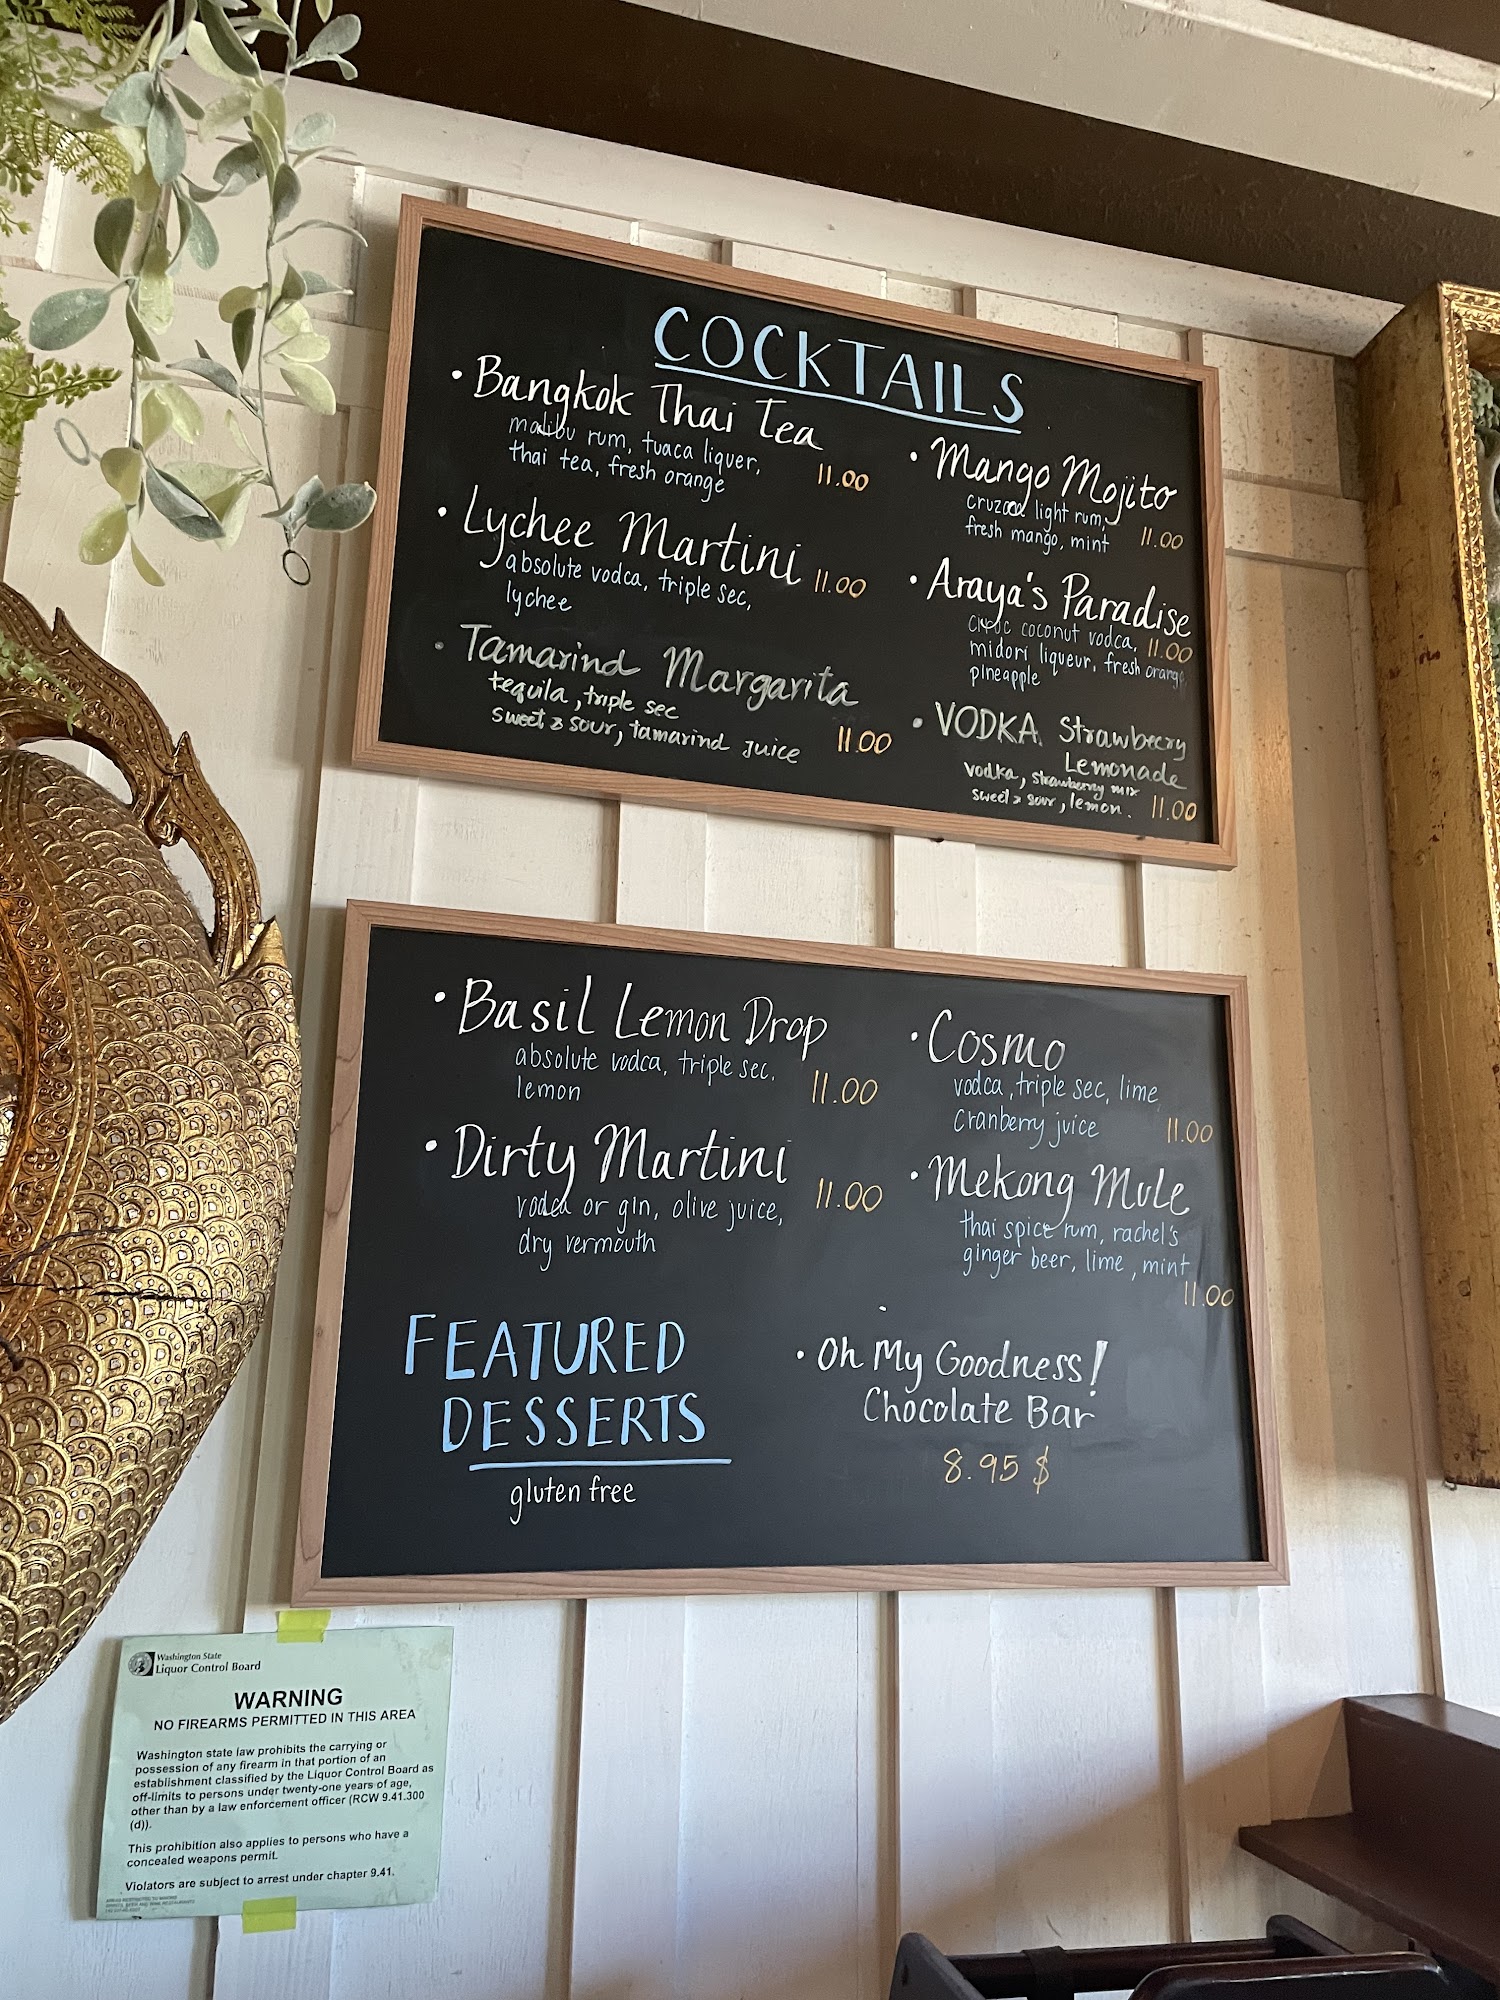 COCKTAILS
• Bangkok Thai Tea
malibu rum, tuaca liquer,
thai tea, fresh orange
11.00
• Lychee Martini
absolute vodca, triple sec,
lychee
11.00
• Tamarind Margarita
tequila, triple sec
sweet & sour, tamarind juice
11.00
• Mango Mojito
light rum,
fresh mango, mint
11.00
• Araya's Paradise
coconut vodca,
midori liqueur, fresh orange,
pineapple
11.00
• VODKA Strawberry
Lemonade
vodka, strawberry mix
sweet & sour, lemon.
11.00
• Basil Lemon Drop
absolute vodca, triple sec,
lemon
11.00
• Dirty Martini
vodca or gin, olive juice,
dry vermouth
11.00
• Cosmo
vodca, triple sec, lime,
cranberry juice
11.00
• Mekong Mule
thai spice rum, rachel's
ginger beer, lime, mint
11.00
FEATURED
DESSERTS
gluten free
• Oh My Goodness!
Chocolate Bar
8.95 $
Washington State
Liquor Control Board
WARNING
NO FIREARMS PERMITTED IN THIS AREA
Washington state law prohibits the carrying or
possession of any firearm in that portion of an
establishment classified by the Liquor Control Board as
off-limits to persons under twenty-one years of age,
other than by a law enforcement officer (RCW 9.41.300
(d)).
This prohibition also applies to persons who have a
concealed weapons permit.
Violators are subject to arrest under chapter 9.41.